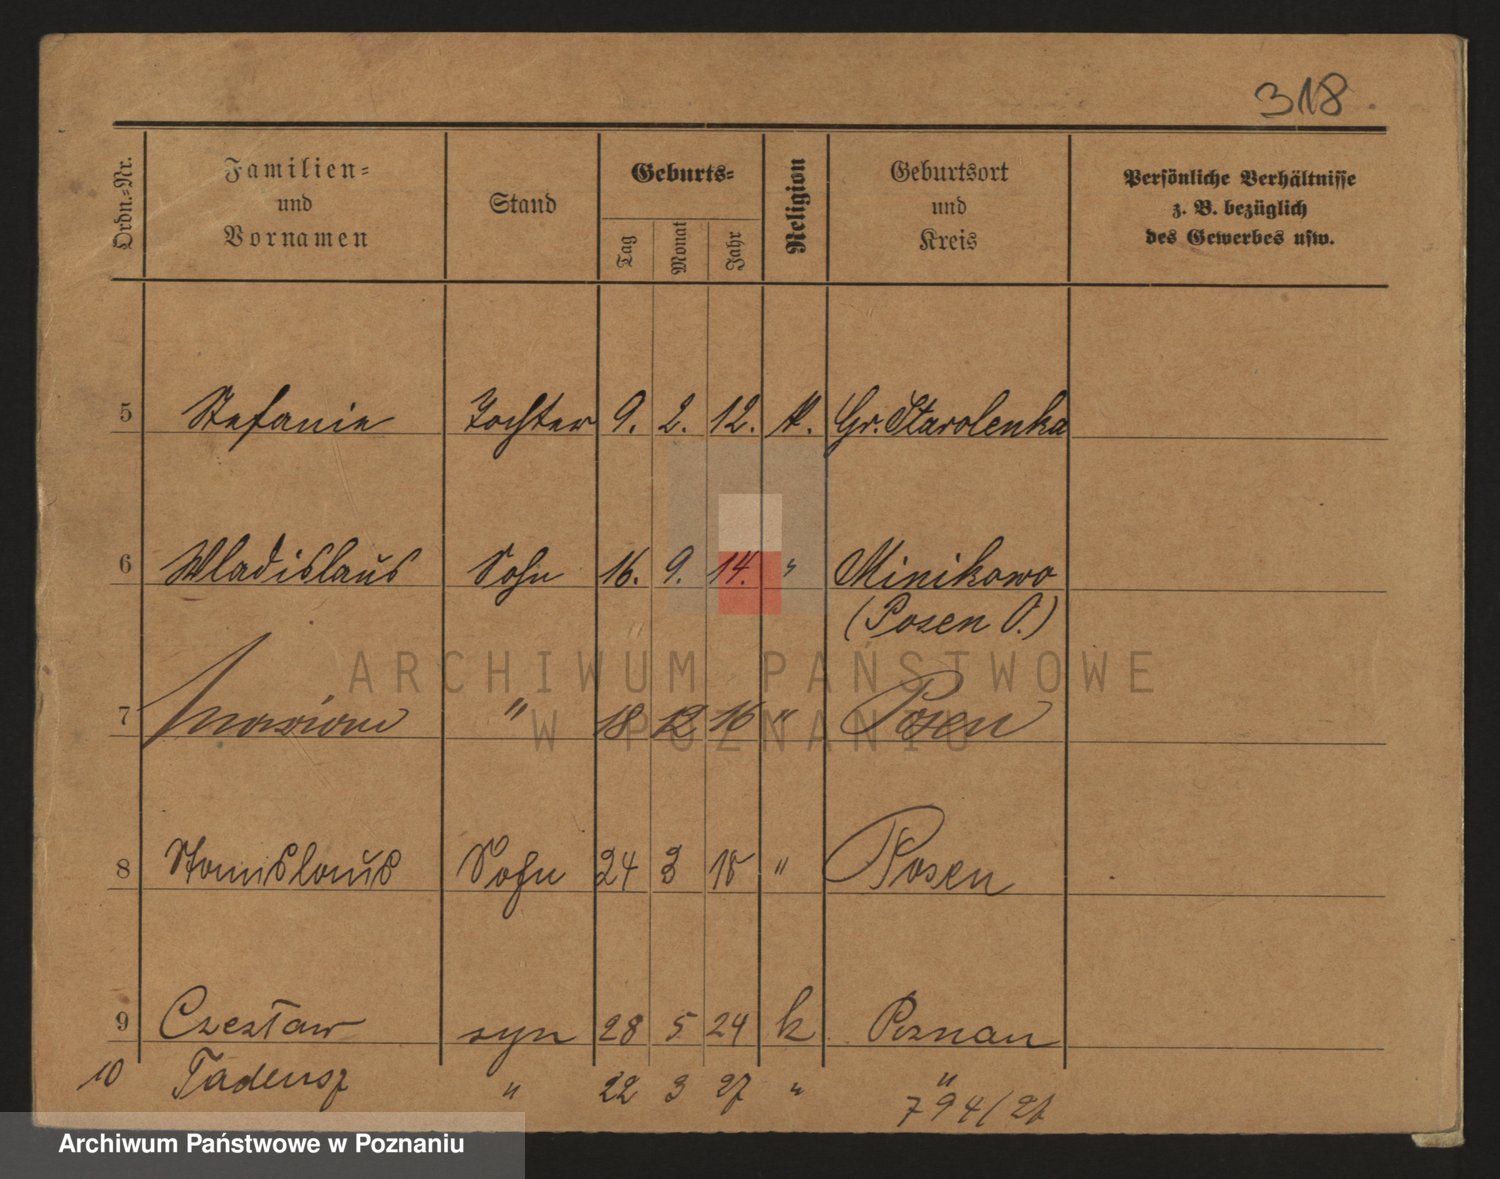 318
Ordn.-Nr.
Familien-
und
Vornamen
Stand
Geburts-
Tag
Monat
Jahr
Religion
Geburtsort
und
Kreis
Persönliche Verhältnisse
z. B. bezüglich
des Gewerbes usw.
5 Stefanie Tochter 9. 2. 12. k. Gr. Starolenka
6 Wladislaus Sohn 16. 9. 14. " Minikowo
(Posen O.)
ARCHIWUM PAŃSTWOWE
W POZNANIU
7 Marian " 18 12 16 " Posen
8 Stanislaus Sohn 24 3 18 " Posen
9 Czesław syn 28 5 24 k Poznan
10 Tadeusz " 22 3 27 " "
794/27
Archiwum Państwowe w Poznaniu